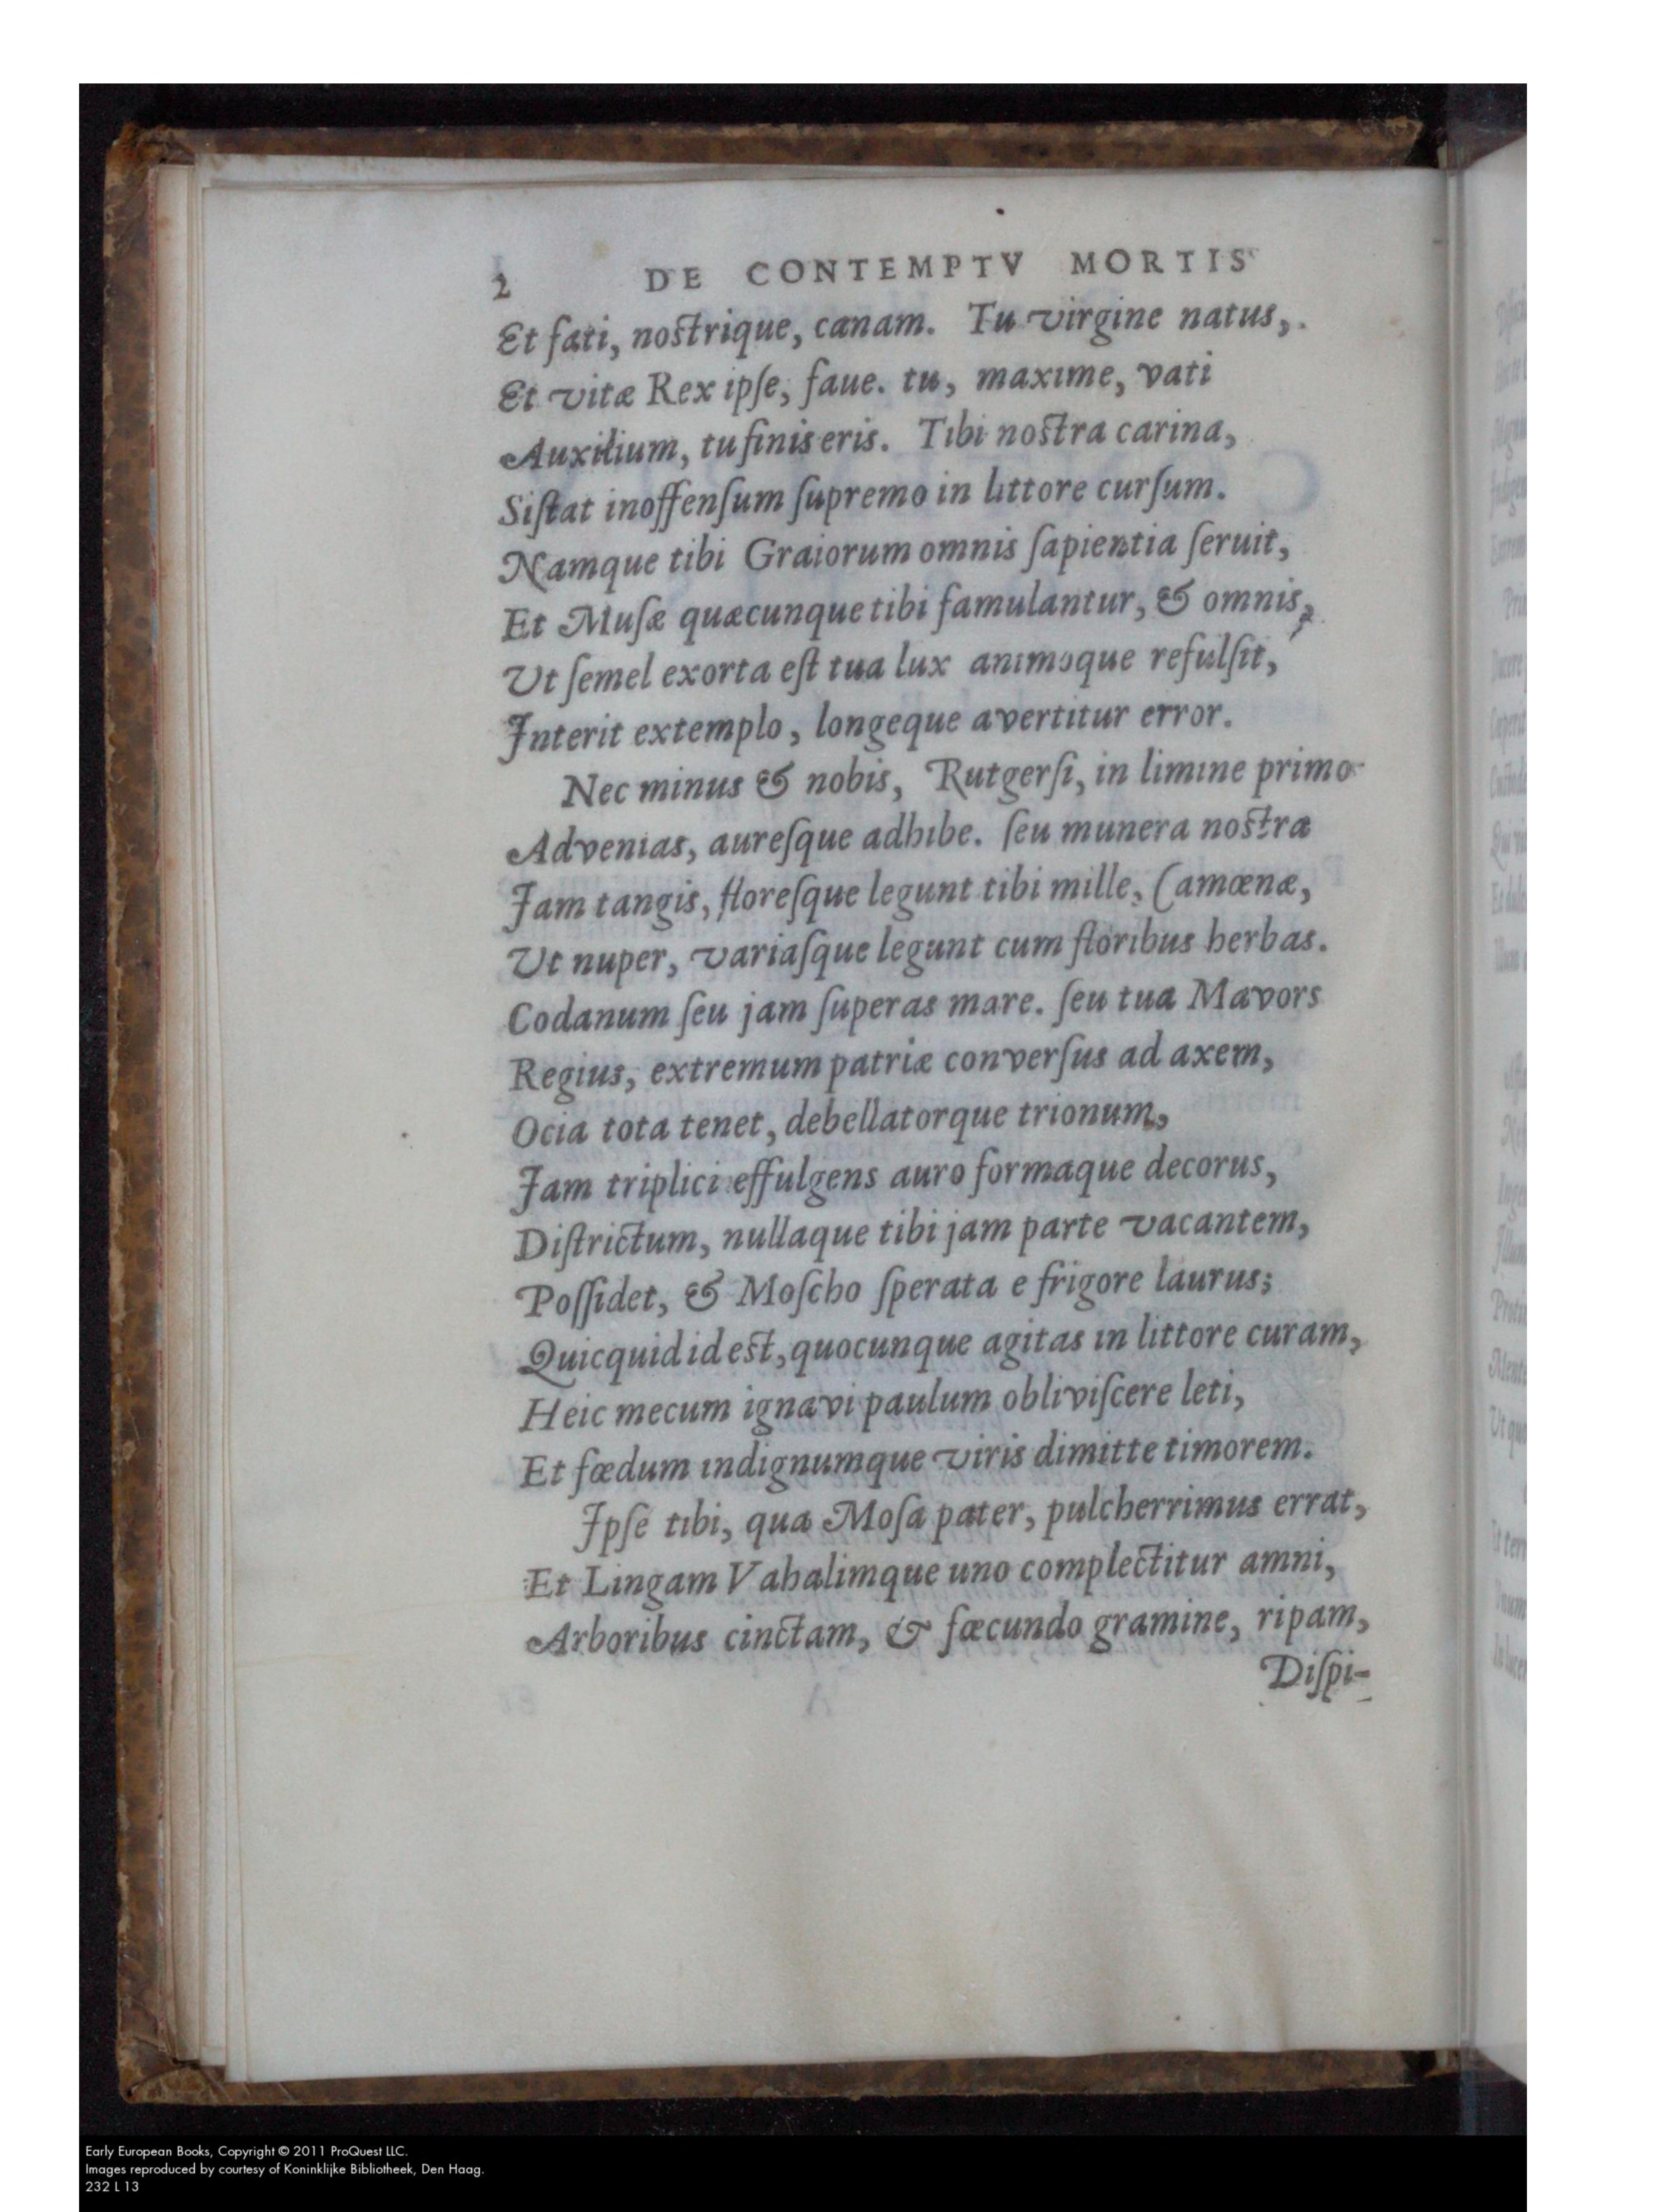 2 DE CONTEMPTV MORTIS
Et fati, nostrique, canam. Tu virgine natus,.
Et vitæ Rex ipſe, faue. tu, maxime, vati
Auxilium, tu finis eris. Tibi nostra carina,
Siſtat inoffenſum ſupremo in littore curſum.
Namque tibi Graiorum omnis ſapientia ſeruit,
Et Muſæ quæcunque tibi famulantur, & omnis,
Ut ſemel exorta eſt tua lux animoque refulſit,
Interit extemplo, longeque avertitur error.
Nec minus & nobis, Rutgerſi, in limine primo
Advenias, aureſque adhibe. ſeu munera nostra
Jam tangis, floreſque legunt tibi mille, Camœnæ,
Ut nuper, variaſque legunt cum floribus herbas.
Codanum ſeu jam ſuperas mare. ſeu tua Mavors
Regius, extremum patriæ converſus ad axem,
Ocia tota tenet, debellatorque trionum,
Jam triplici effulgens auro formaque decorus,
Diſtrictum, nullaque tibi jam parte vacantem,
Poſſidet, & Moſcho ſperata e frigore laurus;
Quicquid id est, quocunque agitas in littore curam,
Heic mecum ignavi paulum obliviſcere leti,
Et fœdum indignumque viris dimitte timorem.
Ipſe tibi, qua Moſa pater, pulcherrimus errat,
Et Lingam Vahalimque uno complectitur amni,
Arboribus cinctam, & fæcundo gramine, ripam,
Diſpi-
Early European Books, Copyright © 2011 ProQuest LLC.
Images reproduced by courtesy of Koninklijke Bibliotheek, Den Haag.
232 L 13